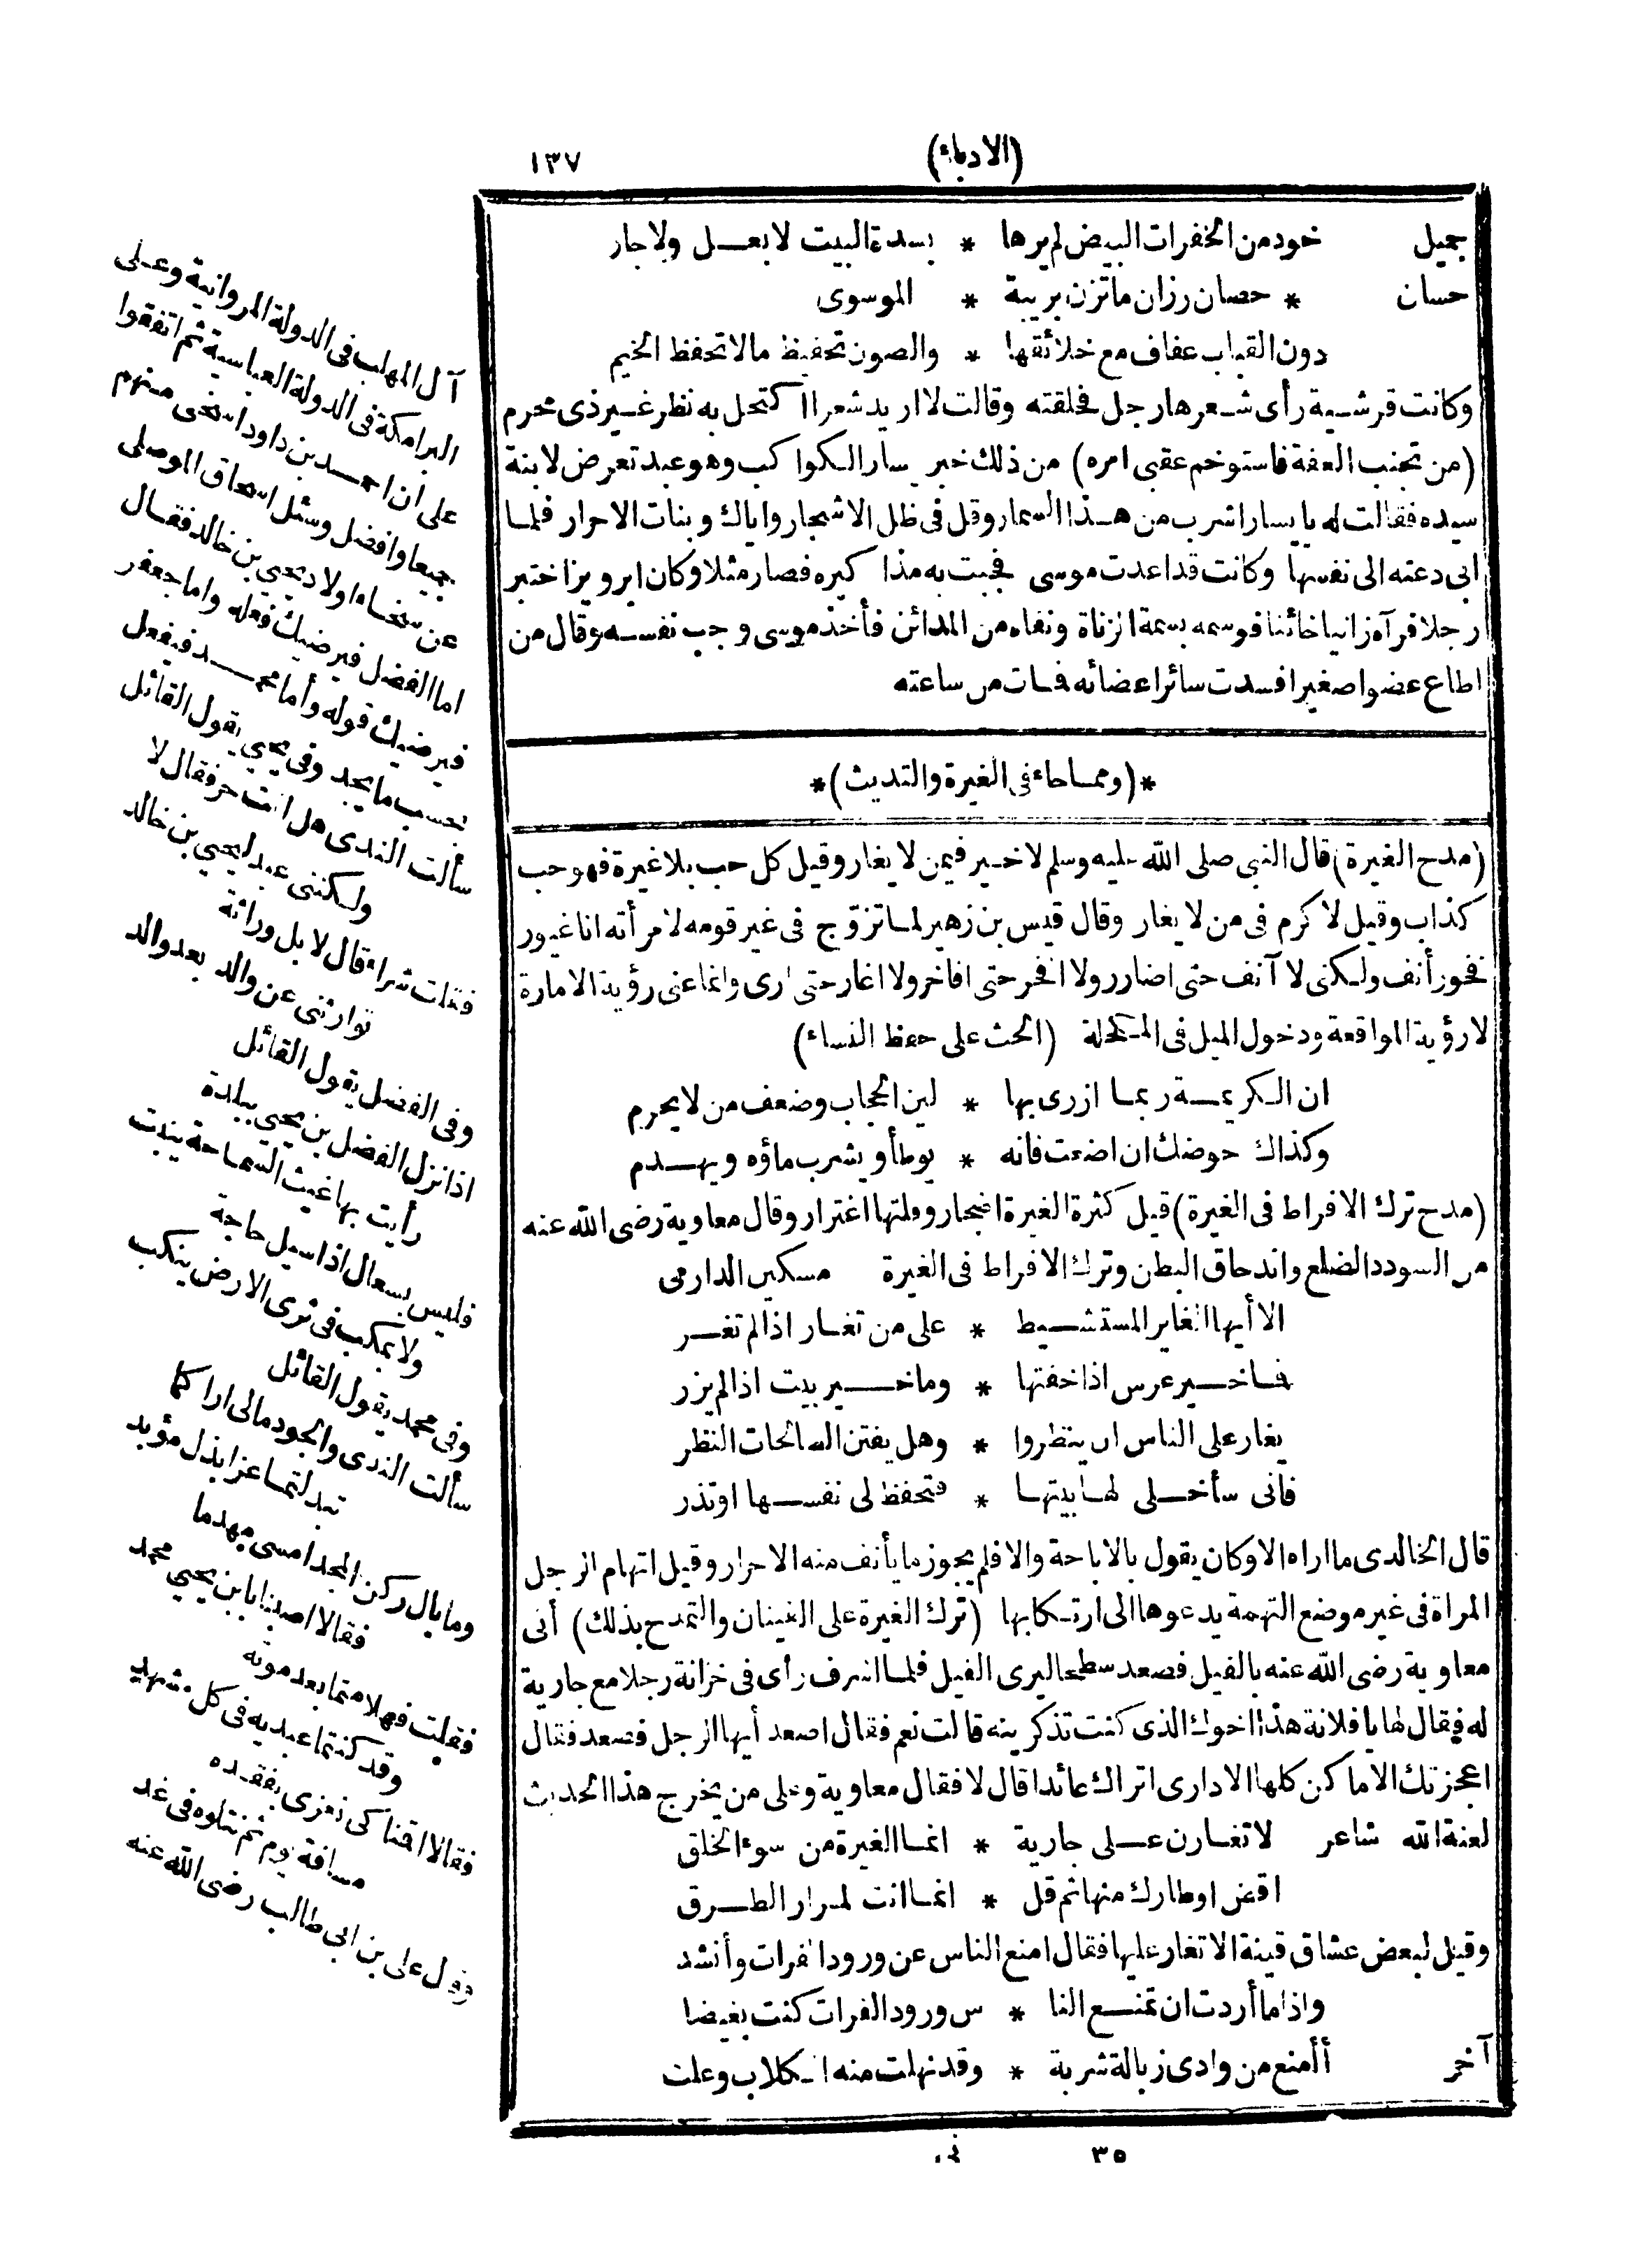 (الادباء)
١٣٧
جميل خود من الخفرات البيض لم يرها * بسدة البيت لا بعل ولا جار
حسان * حصان رزان ما تزن بريبة * الموسوى
دون القباب عفاف مع خلائقها * والصون تحفيظ مالا تحفظ الخيم
وكانت قرشية رأى شعرها رجل فحلقته وقالت لا اريد شعرا اكتحل به نظر غير ذى محرم
(من تجنب العفة فاستوخم عقبى امره) من ذلك خبر يسار الكواكب وهو عبد تعرض لابنة
سيده فقالت له يا يسار اشرب من هذا السمار وقل فى ظل الاشجار واياك وبنات الاحرار فلما
ابى دعته الى نفسها وكانت قد اعدت موسى فجبت به مذاكيره فصار مثلا وكان ابرويز اختبر
رجلا فرآه زانيا خائنا فوسمه بسمة الزناة ونفاه من المدائن فأخذ موسى وجب نفسه وقال من
اطاع عضوا صغيرا فسدت سائر اعضائه فمات من ساعته
*(ومما جاء فى الغيرة والتديث)*
(مدح الغيرة) قال النبى صلى الله عليه وسلم لا خير فيمن لا يغار وقيل كل حب بلا غيرة فهو حب
كذاب وقيل لا كرم فى من لا يغار وقال قيس بن زهير لما تزوّج فى غير قومه لامرأته انا غيور
فخور أنف ولكنى لا آنف حتى اضار ولا افخر حتى افاخر ولا اغار حتى ارى وانما عنى رؤية الامارة
لا رؤية المواقعة ودخول الميل فى المكحلة (الحث على حفظ النساء)
ان الكريمة ربما ازرى بها * لين الحجاب وضعف من لا يحرم
وكذاك حوضك ان اضعت فانه * يوطأ ويشرب ماؤه ويهدم
(مدح ترك الافراط فى الغيرة) قيل كثرة الغيرة اضجار وقلتها اغترار وقال معاوية رضى الله عنه
من السودد الضلع واندحاق البطن وترك الافراط فى الغيرة مسكين الدارمى
الا أيها الغاير المستشيط * على من تغار اذا لم تغر
فما خير عرس اذا خفتها * وما خير بيت اذا لم يزر
يغار على الناس ان ينظروا * وهل يفتن الصالحات النظر
فانى سأخلى لها بيتها * فتحفظ لى نفسها او تذر
قال الخالدى ما اراه الا وكان يقول بالاباحة والا فلم يجوز ما يأنف منه الاحرار وقيل اتهام الرجل
المراة فى غير موضع التهمة يدعوها الى ارتكابها (ترك الغيرة على القينان والتمدح بذلك) أتى
معاوية رضى الله عنه بالفيل فصعد سطحا ليرى الفيل فلما اشرف رأى فى خزانة رجلا مع جارية
له فقال لها يا فلانة هذا اخوك الذى كنت تذكرينه قالت نعم فقال اصعد أيها الرجل فصعد فقال
اعجزتك الاماكن كلها الا دارى اتراك عائدا قال لا فقال معاوية وعلى من يخرج هذا الحديث
لعنة الله شاعر لا تغارن على جارية * انما الغيرة من سوء الخلق
اقض اوطارك منها ثم قل * انما انت لمرار الطرق
وقيل لبعض عشاق قينة الا تغار عليها فقال امنع الناس عن ورود الفرات وأنشد
واذا ما أردت ان تمنع النا * س ورود الفرات كنت بغيضا
آخر أأمنع من وادى زبالة شربة * وقد نهلت منه الكلاب وعلت
٣٥ نى
آل المهلب فى الدولة المروانية وعلى
البرامكة فى الدولة العباسية ثم اتفقوا
على أن احمد بن داود اسخى منهم
جميعا وافضل وسئل اسحاق الموصلى
عن سخاء اولاد يحيى بن خالد فقال
اما الفضل فيرضيك فعله واما جعفر
فيرضيك قوله وأما محمد فيفعل
بحسب ما يجد وفى يحيى يقول القائل
سألت الندى هل انت حر فقال لا
ولكننى عبد ليحيى بن خالد
فقلت شراء قال لا بل وراثة
توارثنى عن والد بعد والد
وفى الفضل يقول القائل
اذا نزل الفضل بن يحيى ببلدة
رأيت بها غيث السماحة ينبت
فليس بسعال اذا سيل حاجة
ولا بمكب فى ثرى الارض ينكب
وفى محمد يقول القائل
سألت الندى والجود مالى اراكما
تبدلتما عزا بذل مؤبد
وما بال ركن المجد امسى مهدما
فقالا اصبنا بابن يحيى محمد
فقلت فهلا متما بعد موته
وقد كنتما عبديه فى كل مشهد
فقالا اقمنا كى نعزى بفقده
مسافة يوم ثم نتلوه فى غد
قول على بن ابى طالب رضى الله عنه